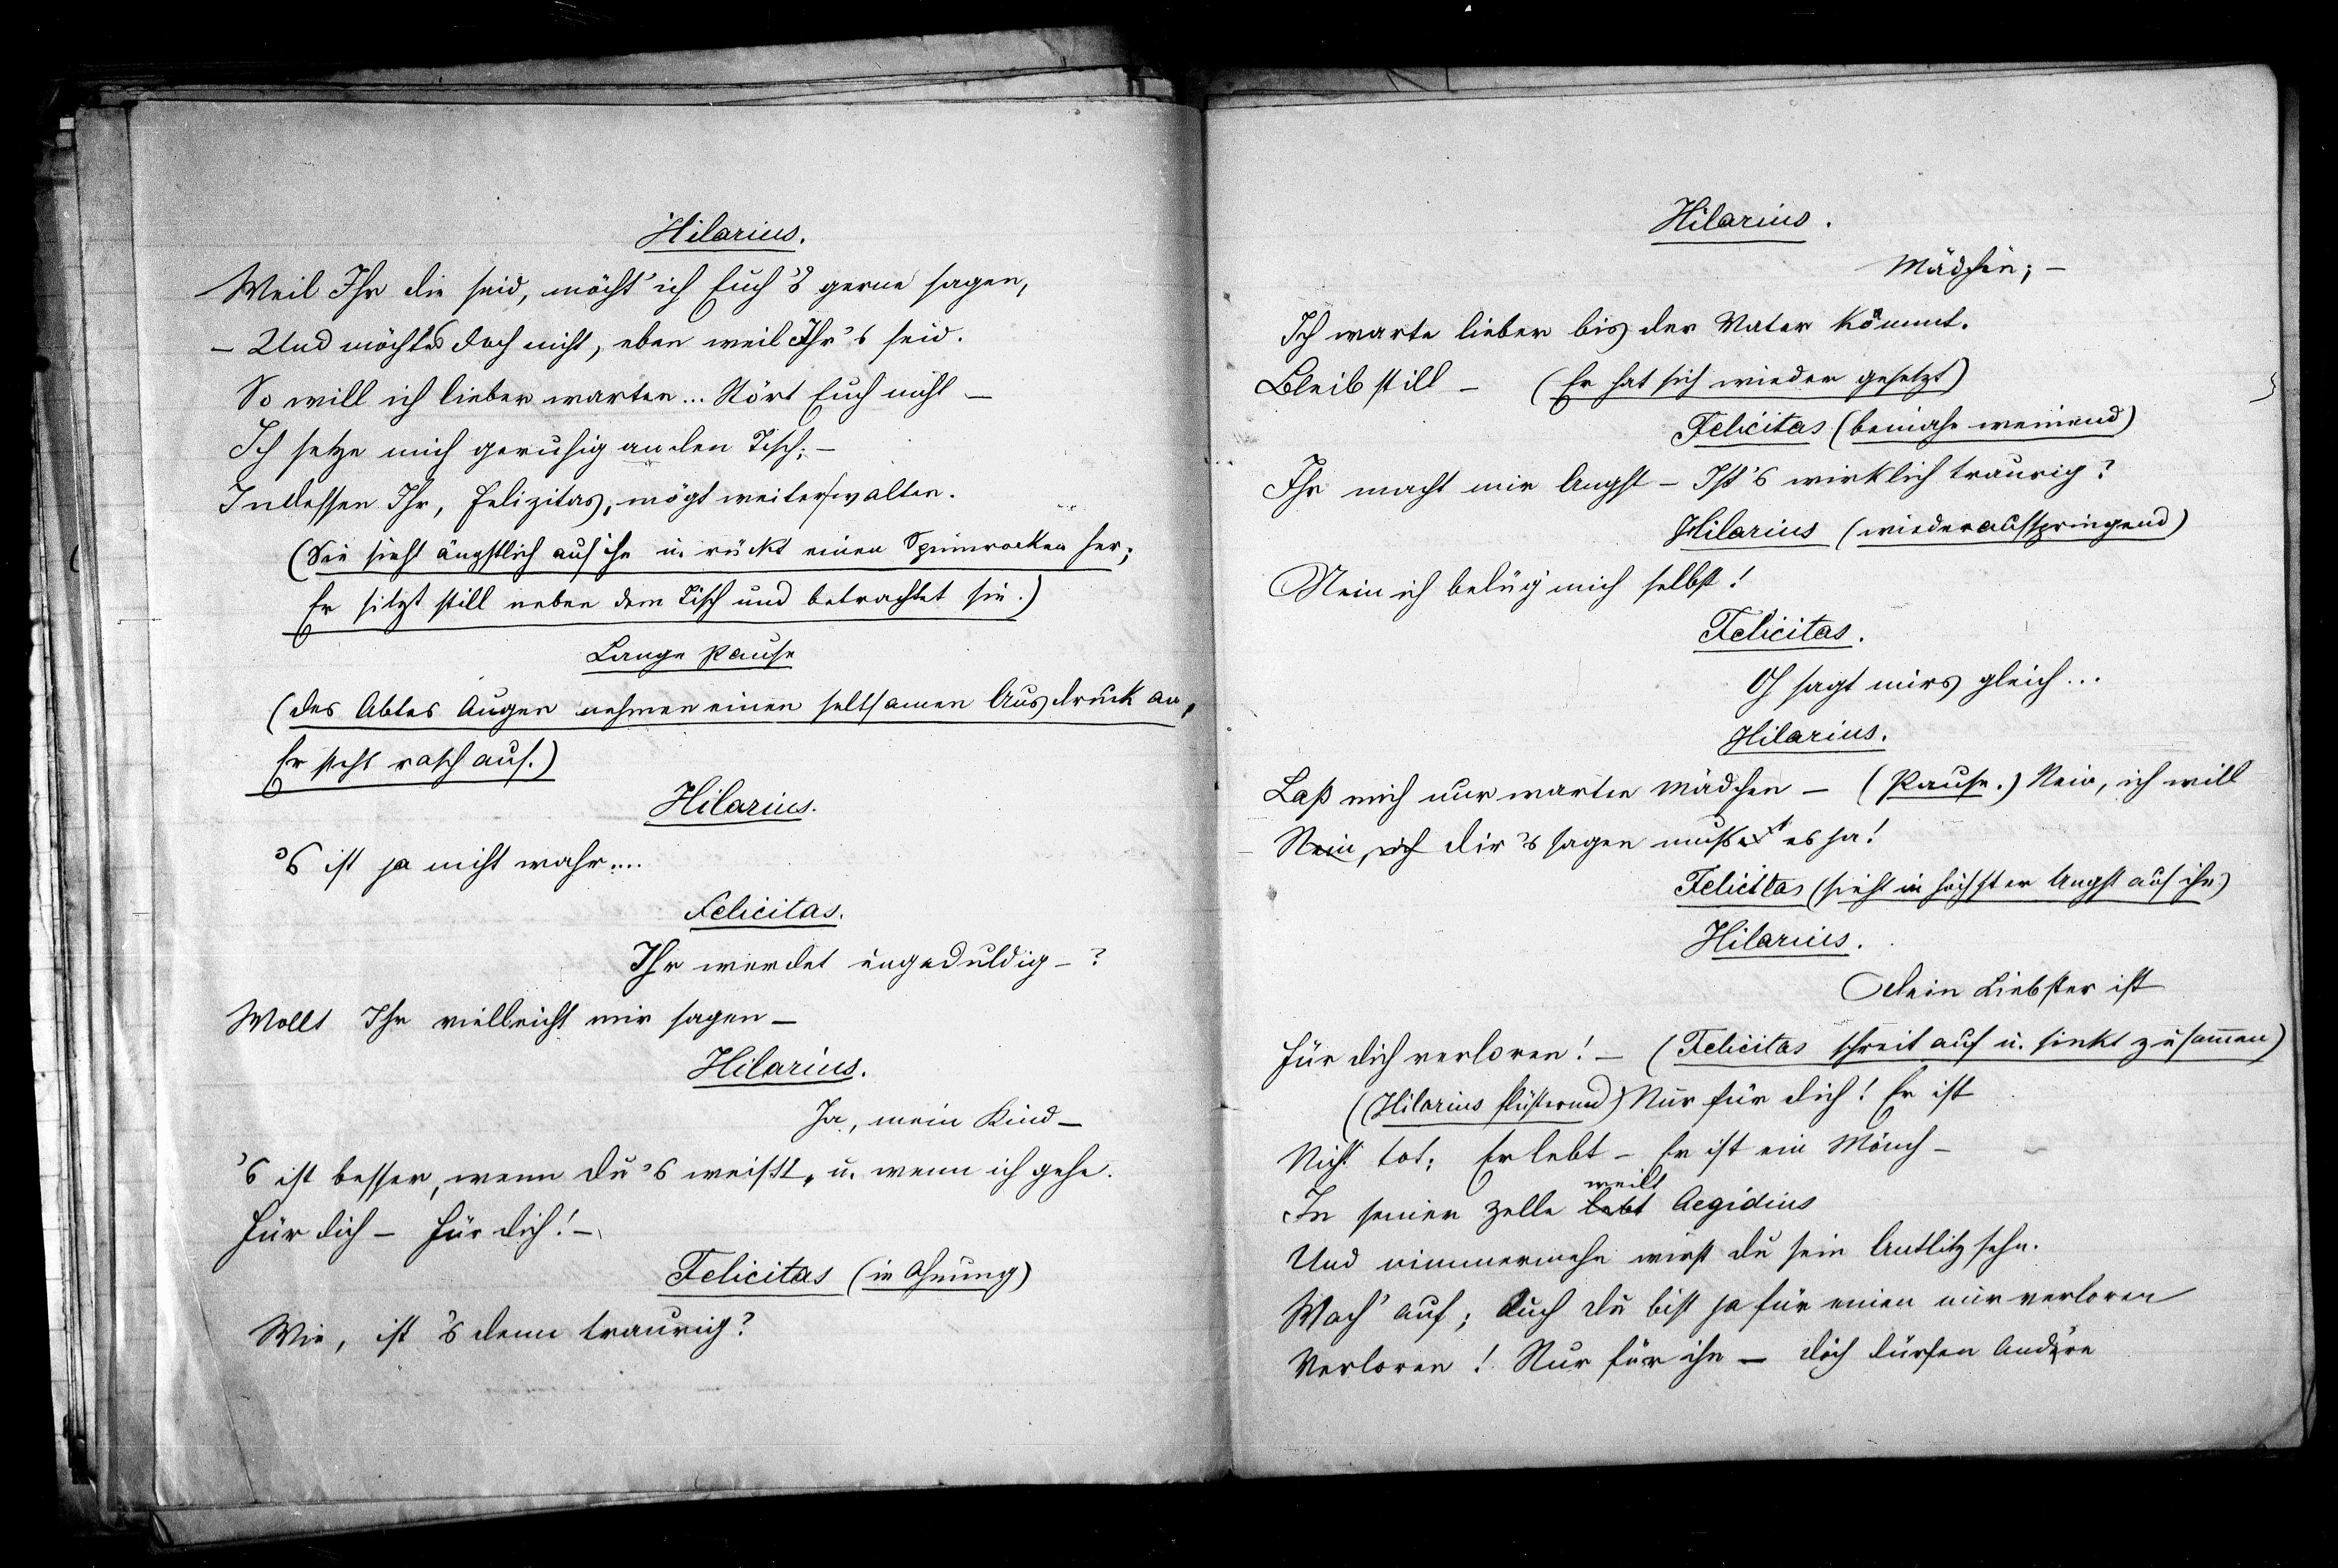 Hilarius.
Weil Ihr die seid, möcht' ich Euch 's gerne sagen,
– Und möcht es doch nicht, eben weil Ihr 's seid.
So will ich lieber warten... Stört Euch nicht –
Ich setze mich geruhig an den Tisch; –
Indessen Ihr, Felizitas, mögt weiter walten.
(Sie sieht ängstlich auf ihn u. rückt einen Spinnrocken her;
Er sitzt still neben dem Tisch und betrachtet sie.)
Lange Pause
(Des Abtes Augen nehmen einen seltsamen Ausdruck an,
Er steht rasch auf.)
Hilarius.
's ist ja nicht wahr....
Felicitas.
Ihr werdet ungeduldig – ?
Wollt Ihr vielleicht mir sagen –
Hilarius.
Ja, mein Kind –
's ist besser, wenn du 's weißt, u. wenn ich gehe.
Für dich – Für dich! –
Felicitas (in Ahnung)
Wie, ist 's denn traurig?
Hilarius.
Mädchen; –
Ich warte lieber bis der Vater kommt.
Bleib still – (Er hat sich wieder gesetzt)
Felicitas (beinahe weinend)
Ihr macht mir Angst – Ist 's wirklich traurig?
Hilarius (wiederaufspringend)
Nein ich belüg' mich selbst!
Felicitas.
Oh sagt mirs gleich...
Hilarius.
Laß mich nur warten Mädchen – (Pause.) Nein, ich will
Nein, ich dir 's sagen mußt es ja!
Felicitas (sieht in höchster Angst auf ihn)
Hilarius.
Dein Liebster ist
Für dich verloren! – (Felicitas schreit auf u. sinkt zusammen)
(Hilarius flüsternd) Nur für dich! Er ist
Nicht tot; Er lebt – Er ist ein Mönch –
In seiner Zelle lebt weilt Aegidius
Und nimmermehr wirst du sein Antlitz sehn.
Wach' auf; Auch du bist ja für einen nur verloren
Verloren! Nur für ihn – dich dürfen Andere